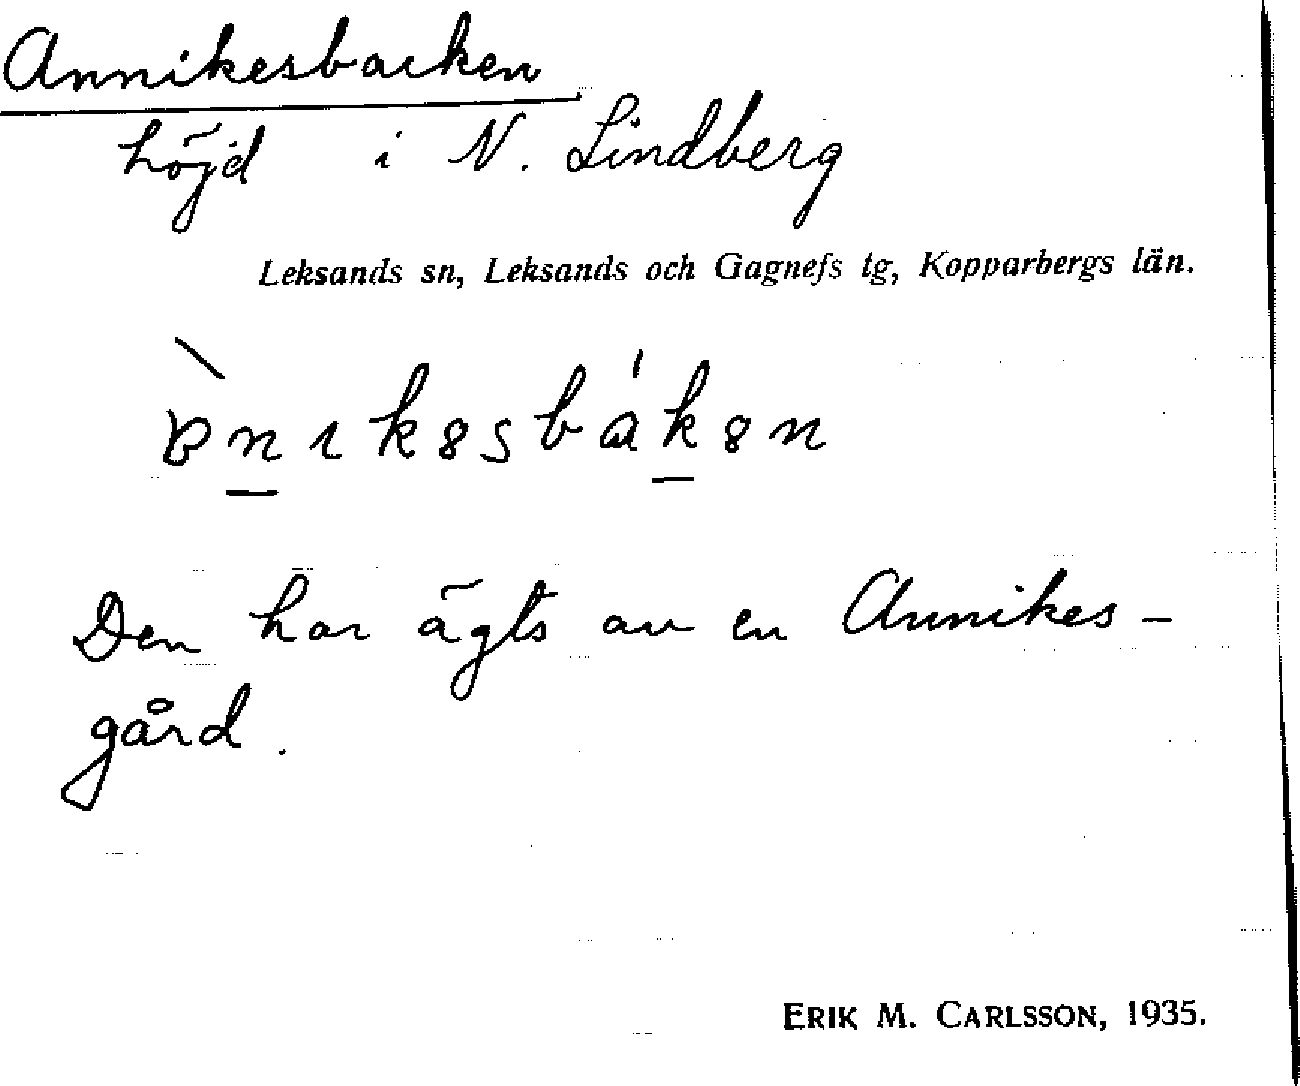 Annikesbacken
höjd i N. Lindberg
Leksands sn, Leksands och Gagnefs tg, Kopparbergs län.
Den har ägts av en Annikes-
gård.
ERIK M. CARLSSON, 1935.